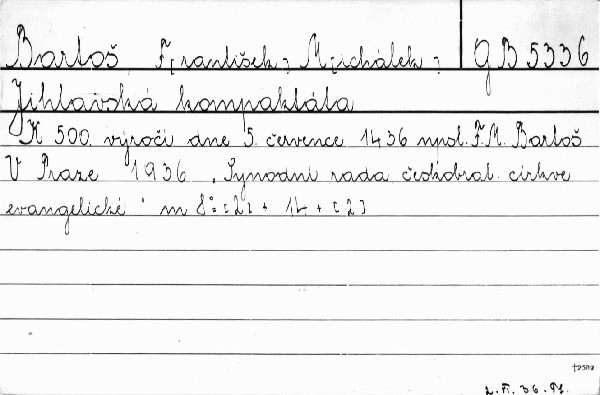 Bartoš, F[rantišek] M[ichálek] GB 5336
Jihlavská kompaktáta
K 500. výročí dne 5. července 1436 napsl. F. M. Bartoš
V Praze 1936 „Synodní rada českobrat. církve
evangelické" m 8° [2] + 14 + [2]